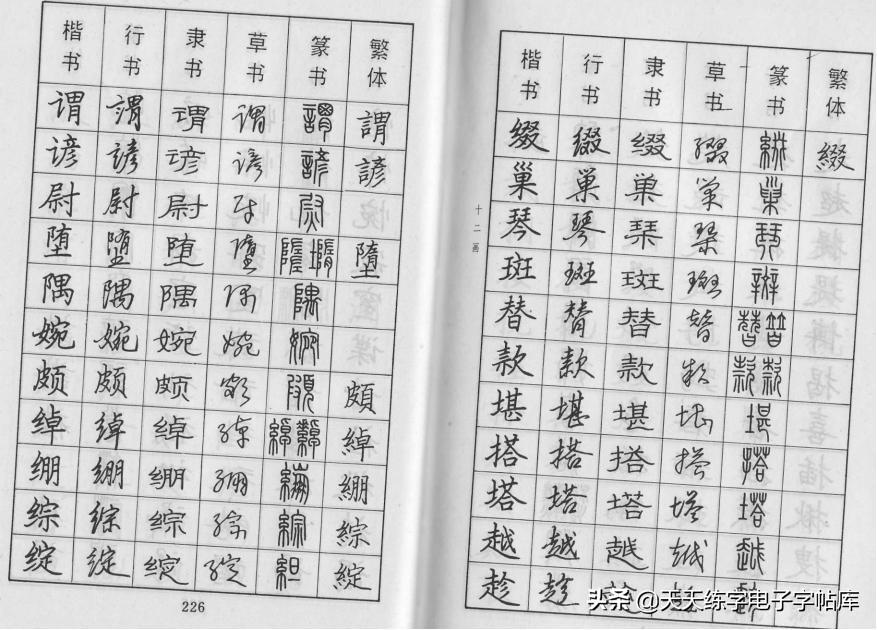 楷书 行书 隶书 草书 篆书 繁体
谓 谓 谓 谓 謂 謂
谚 谚 谚 谚 諺 諺
尉 尉 尉 尉 尉
堕 墮 堕 墮 墮 墮
隅 隅 隅 隅 隅
婉 婉 婉 婉 婉
颇 颇 颇 颇 頗 頗
绰 绰 绰 绰 綽 綽
绷 绷 绷 绷 繃 綳
综 综 综 综 綜 綜
绽 绽 绽 绽 組 綻
226
楷书 行书 隶书 草书 篆书 繁体
缀 缀 缀 缀 綴 綴
巢 巢 巢 巢 巢
十二画
琴 琴 琴 琴 琴
斑 斑 斑 斑 辬
替 替 替 替 替
款 款 款 款 款 款
堪 堪 堪 堪 堪
搭 搭 搭 搭 搭
塔 塔 塔 塔 塔
越 越 越 越 越
趁 趁 趁 趁 趁
头条 @天天练字电子字帖库